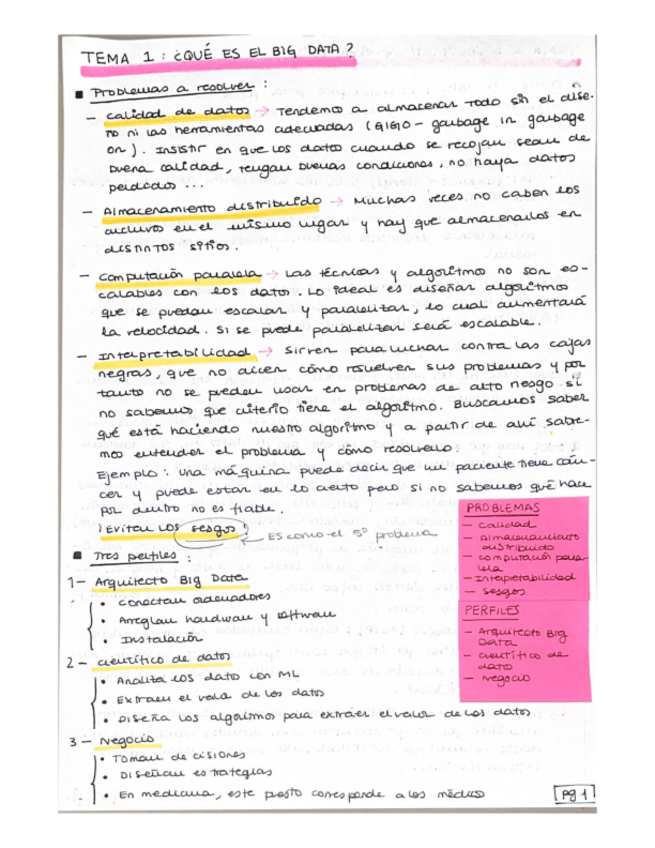 TEMA 1: ¿QUÉ ES EL BIG DATA?
Problemas a resolver:
- Calidad de datos → Tendemos a almacenar todo sin el dise-
ño ni las herramientas adecuadas (GIGO - garbage in garbage
on). Insistir en que los datos cuando se recojan sean de
buena calidad, tengan buenas condiciones, no haya datos
perdidos...
- Almacenamiento distribuido → Muchas veces no caben los
archivos en el mismo lugar y hay que almacenarlos en
distintos sitios.
- Computación paralela → Las técnicas y algoritmo no son es-
calables con los datos. Lo ideal es diseñar algoritmos
que se puedan escalar y paralelizar, lo cual aumentará
la velocidad. Si se puede paralelizar será escalable.
- Interpretabilidad → Sirven para luchar contra las cajas
negras, que no dicen cómo resuelven sus problemas y por
tanto no se pueden usar en problemas de alto riesgo si
no sabemos que criterio tiene el algoritmo. Buscamos saber
qué está haciendo nuestro algoritmo y a partir de ahí sabe-
mos entender el problema y cómo resolverlo.
Ejemplo: una máquina puede decir que un paciente tiene cán-
cer y puede estar en lo cierto pero si no sabemos qué hace
por dentro no es fiable.
¡Evitar los sesgos!
Es como el 5º problema
Tres perfiles:
1- Arquitecto Big Data
• Conectan ordenadores
• Arreglan hardware y software
• Instalación
2- Científico de datos
• Analiza los datos con ML
• Extraen el valor de los datos
• Diseña los algoritmos para extraer el valor de los datos
3- Negocio
• Toman decisiones
• Diseñan estrategias
• En medicina, este puesto corresponde a los médicos
PROBLEMAS
- Calidad
- Almacenamiento
distribuido
- Computación para-
lela
- Interpretabilidad
- Sesgos
PERFILES
- Arquitecto Big
Data
- Científico de
datos
- Negocio
Pg 1